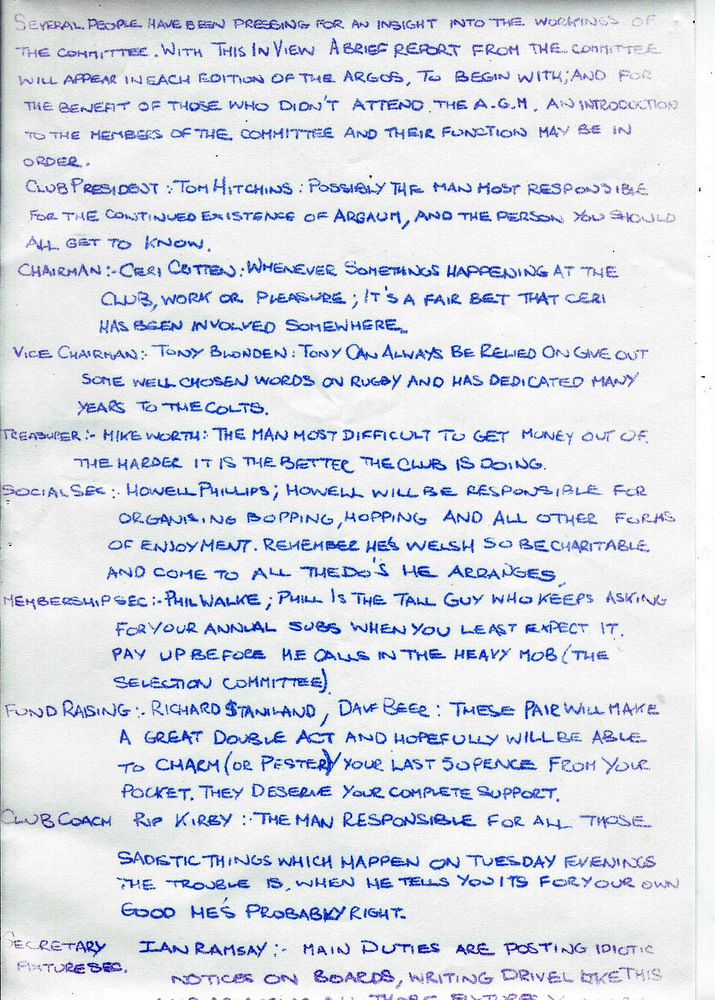 SEVERAL PEOPLE HAVE BEEN PRESSING FOR AN INSIGHT INTO THE WORKINGS OF
THE COMMITTEE. WITH THIS IN VIEW A BRIEF REPORT FROM THE COMMITTEE
WILL APPEAR IN EACH EDITION OF THE ARGOS, TO BEGIN WITH; AND FOR
THE BENEFIT OF THOSE WHO DIDN'T ATTEND THE A.G.M, AN INTRODUCTION
TO THE MEMBERS OF THE COMMITTEE AND THEIR FUNCTION MAY BE IN
ORDER.
CLUB PRESIDENT : TOM HITCHINS : POSSIBLY THE MAN MOST RESPONSIBLE
FOR THE CONTINUED EXISTENCE OF ARGAUM, AND THE PERSON YOU SHOULD
ALL GET TO KNOW.
CHAIRMAN :- CERI CRITTEN : WHENEVER SOMETHINGS HAPPENING AT THE
CLUB, WORK OR PLEASURE ; IT'S A FAIR BET THAT CERI
HAS BEEN INVOLVED SOMEWHERE.
VICE CHAIRMAN :- TONY BLONDEN : TONY CAN ALWAYS BE RELIED ON GIVE OUT
SOME WELL CHOSEN WORDS ON RUGBY AND HAS DEDICATED MANY
YEARS TO THE COLTS.
TREASURER :- MIKE WORTH : THE MAN MOST DIFFICULT TO GET MONEY OUT OF.
THE HARDER IT IS THE BETTER THE CLUB IS DOING.
SOCIAL SEC :- HOWELL PHILLIPS ; HOWELL WILL BE RESPONSIBLE FOR
ORGANISING BOPPING, HOPPING AND ALL OTHER FORMS
OF ENJOYMENT. REMEMBER HE'S WELSH SO BE CHARITABLE
AND COME TO ALL THE DO'S HE ARRANGES.
MEMBERSHIP SEC :- PHIL WALKE ; PHILL IS THE TALL GUY WHO KEEPS ASKING
FOR YOUR ANNUAL SUBS WHEN YOU LEAST EXPECT IT.
PAY UP BEFORE HE CALLS IN THE HEAVY MOB (THE
SELECTION COMMITTEE)
FUND RAISING :- RICHARD STANILAND, DAVE BEER : THESE PAIR WILL MAKE
A GREAT DOUBLE ACT AND HOPEFULLY WILL BE ABLE
TO CHARM (OR PESTER) YOUR LAST 50 PENCE FROM YOUR
POCKET. THEY DESERVE YOUR COMPLETE SUPPORT.
CLUB COACH RIP KIRBY :- THE MAN RESPONSIBLE FOR ALL THOSE
SADISTIC THINGS WHICH HAPPEN ON TUESDAY EVENINGS
THE TROUBLE IS, WHEN HE TELLS YOU ITS FOR YOUR OWN
GOOD HE'S PROBABLY RIGHT.
SECRETARY IAN RAMSAY :- MAIN DUTIES ARE POSTING IDIOTIC
FIXTURE SEC. NOTICES ON BOARDS, WRITING DRIVEL LIKE THIS
ALL THOSE FIXTURES